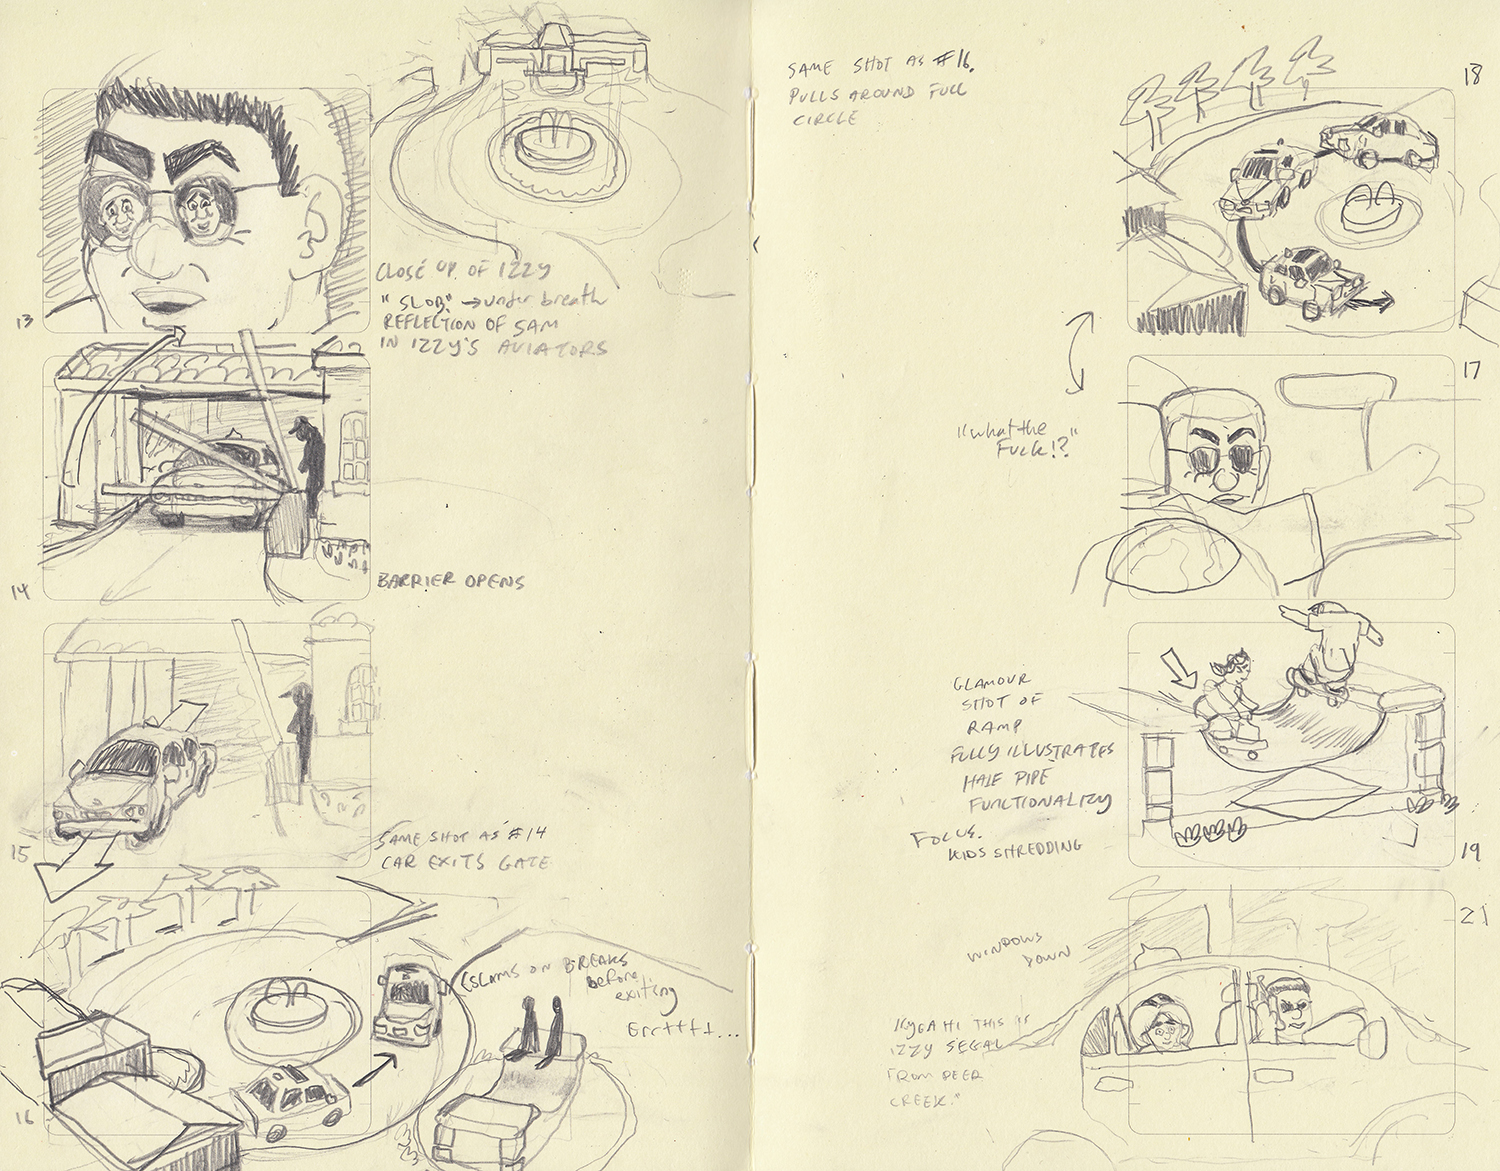 13
CLOSE UP OF IZZY
"SLOB" → under breath
REFLECTION OF SAM
IN IZZY'S AVIATORS
14
BARRIER OPENS
15
SAME SHOT AS #14
CAR EXITS GATE
16
(SLAMS ON BREAKS
before
exiting
Errtttt...
SAME SHOT AS #16.
PULLS AROUND FULL
CIRCLE
18
17
"what the
Fuck!?"
GLAMOUR
SHOT OF
RAMP
FULLY ILLUSTRATES
HALF PIPE
FUNCTIONALITY
FOCUS.
KIDS SHREDDING
19
21
WINDOWS
DOWN
HI THIS IS
IZZY SEGAL
FROM DEER
CREEK."